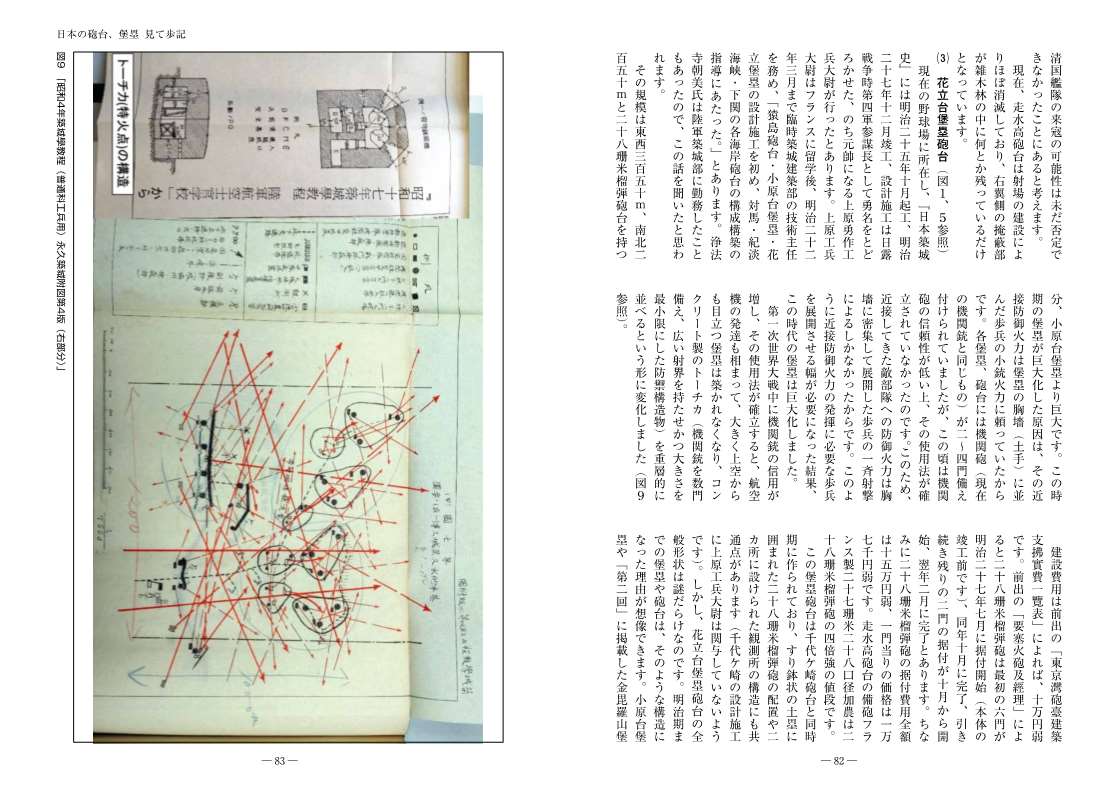 清国艦隊の来寇の可能性は未だ否定で
きなかったことにあると考えます。
現在、走水高砲台は射場の建設によ
りほぼ消滅しており、右翼側の掩蔽部
が雑木林の中に何とか残っているだけ
となっています。
(3) 花立台堡塁砲台（図1、5参照）
現在の野球場に所在し、『日本築城
史』には明治二十五年十月起工、明治
二十七年十二月竣工、設計施工は日露
戦争時第四軍参謀長として勇名をとど
ろかせた、のち元帥になる上原勇作工
兵大尉が行ったとあります。上原工兵
大尉はフランスに留学後、明治二十二
年三月まで臨時築城建築部の技術主任
を務め、「猿島砲台・小原台堡塁・花
立堡塁の設計施工を初め、対馬・紀淡
海峡・下関の各海岸砲台の構成構築の
指導にあたった。」とあります。浄法
寺朝美氏は陸軍築城部に勤務したこと
もあったので、この話を聞いたと思わ
れます。
その規模は東西三百五十ｍ、南北二
百五十ｍと二十八珊米榴弾砲台を持つ
分、小原台堡塁より巨大です。この時
期の堡塁が巨大化した原因は、その近
接防御火力は堡塁の胸墻（土手）に並
んだ歩兵の小銃火力に頼っていたから
です。各堡塁、砲台には機関砲（現在
の機関銃と同じもの）が二〜四門備え
付けられていましたが、この頃は機関
砲の信頼性が低い上、その使用法が確
立されていなかったのです。このため、
近接してきた敵部隊への防御火力は胸
墻に密集して展開した歩兵の一斉射撃
によるしかなかったからです。このよ
うに近接防御火力の発揮に必要な歩兵
を展開させる幅が必要になった結果、
この時代の堡塁は巨大化しました。
第一次世界大戦中に機関銃の信用が
増し、その使用法が確立すると、航空
機の発達も相まって、大きく上空から
も目立つ堡塁は築かれなくなり、コン
クリート製のトーチカ（機関銃を数門
備え、広い射界を持たせかつ大きさを
最小限にした防禦構造物）を重層的に
並べるという形に変化しました（図9
参照）。
建設費用は前出の「東京灣砲臺建築
支拂實費一覧表」によれば、十万円弱
です。前出の「要塞火砲及経理」によ
ると二十八珊米榴弾砲は最初の六門が
明治二十七年七月に据付開始（本体の
竣工前です）、同年十月に完了、引き
続き残りの二門の据付が十月から開
始、翌年二月に完了とあります。ちな
みに二十八珊米榴弾砲の据付費用全額
は十五万円弱、一門当りの価格は一万
七千円弱です。走水高砲台の備砲フラ
ンス製二十七珊米二十八口径加農は二
十八珊米榴弾砲の四倍強の値段です。
この堡塁砲台は千代ケ崎砲台と同時
期に作られており、すり鉢状の土塁に
囲まれた二十八珊米榴弾砲の配置や二
カ所に設けられた観測所の構造にも共
通点があります（千代ケ崎の設計施工
に上原工兵大尉は関与していないよう
です）。しかし、花立台堡塁砲台の全
般形状は謎だらけなのです。明治期ま
での堡塁や砲台は、そのような構造に
なった理由が想像できます。小原台堡
塁や「第二回」に掲載した金毘羅山堡
— 82 —
日本の砲台、堡塁 見て歩記
トーチカ(特火点)の構造
「昭和十七年築城學教程
陸軍航空士官學校」
から
図9 「昭和14年築城學教程（普通科工兵用）永久築城附図第4版（右部分）」
— 83 —